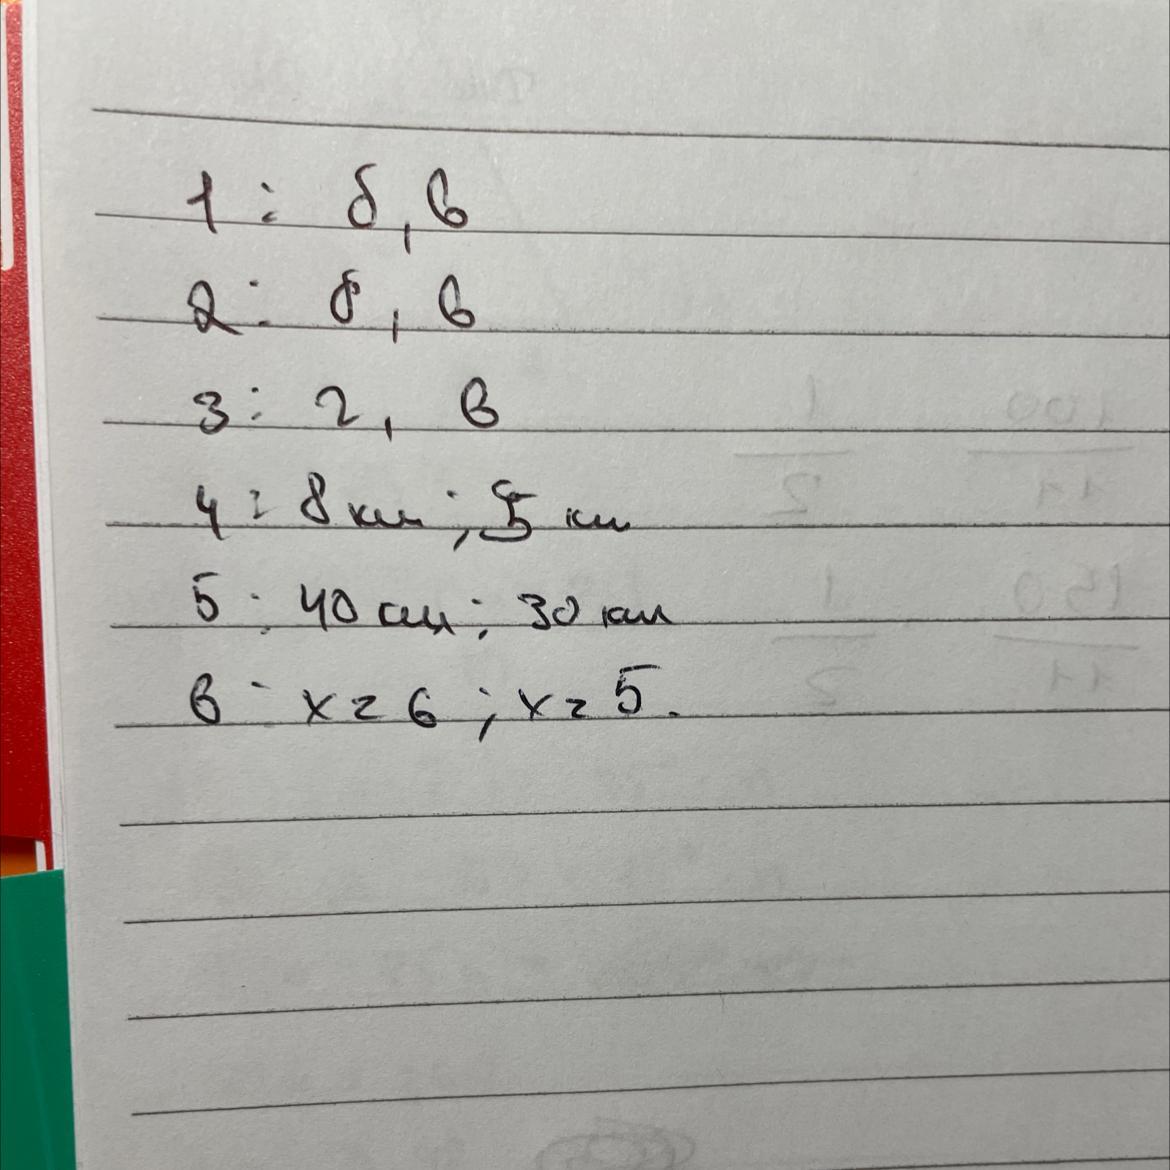 1: б, в
2: б, в
3: г, в
4: 8 км; 5 км
5: 40 см; 30 км
6: x = 6; x = 5.